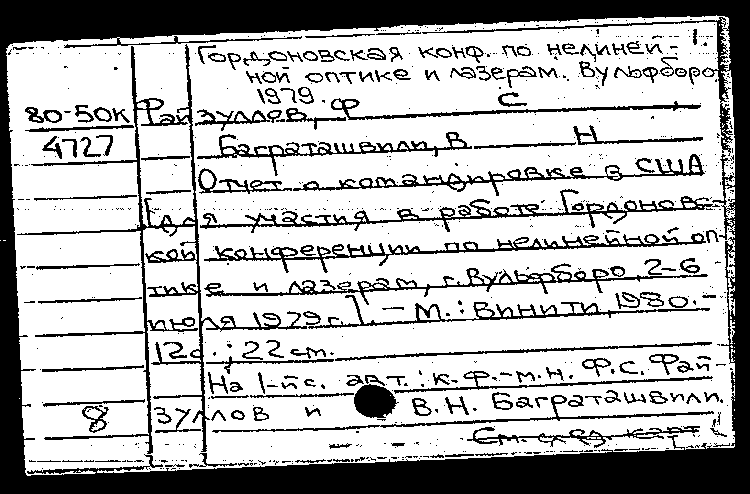 1.
Гордоновская конф. по нелиней-
ной оптике и лазерам. Вульфборо
1979.
80-50К Файзуллов, Ф С
4727 Баграташвили, В Н
Отчет о командировке в США
[для участия в работе Гордоновс-
кой конференции по нелинейной оп-
тике и лазерам, г. Вульфборо, 2-6
июля 1979 г.]. - М.: ВИНИТИ, 1980. -
12 с.; 22 см.
На 1-й с. авт.: к.ф.-м.н. Ф.С. Фай-
8 зуллов и В.Н. Баграташвили.
См. след. карт